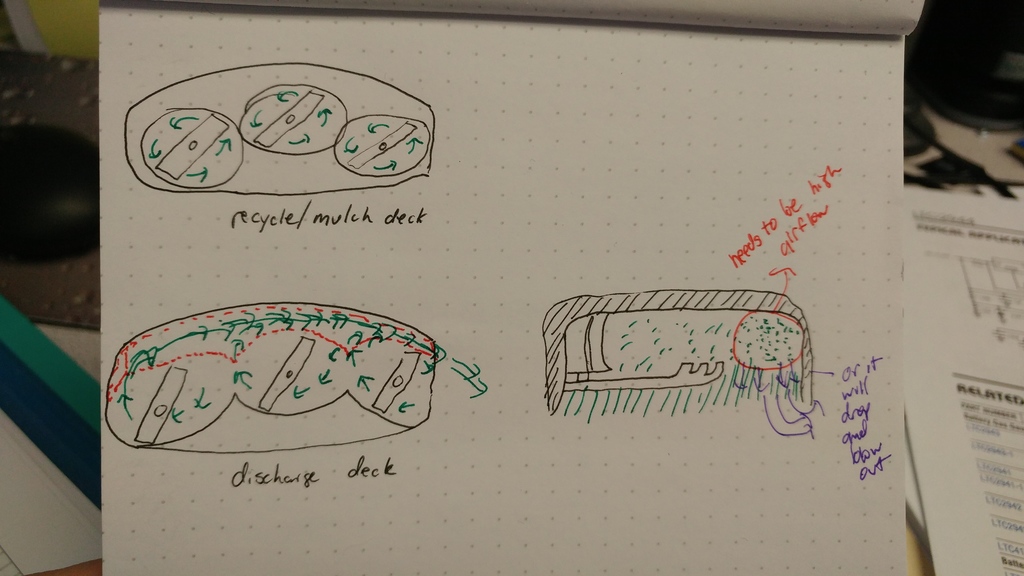 recycle/mulch deck
needs to be high
airflow
discharge deck
or it
will
drop
and
blow
out
RELATED
LTC2942